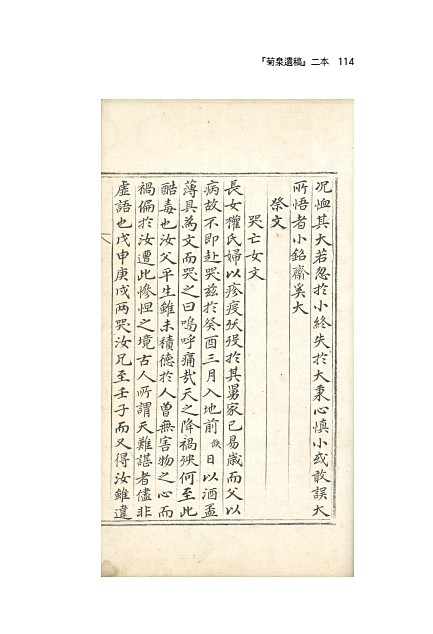 『菊泉遺稿』二本 114
况恤其大若忽於小終失於大秉心愼小或敢誤大
所悟者小銘齋奚大
祭文
哭亡女文
長女權氏婦以疹疫殀歿於其舅家已易歲而父以
病故不即赴哭玆於癸酉三月入地前 日以酒盃
薄具爲文而哭之曰嗚呼痛哉天之降禍殃何至此
酷毒也汝父平生雖未積德於人曾無害物之心而
禍偏於汝遭此慘怛之境古人所謂天難諶者儘非
虛語也戊申庚戌兩哭汝兄至壬子而又得汝雖違